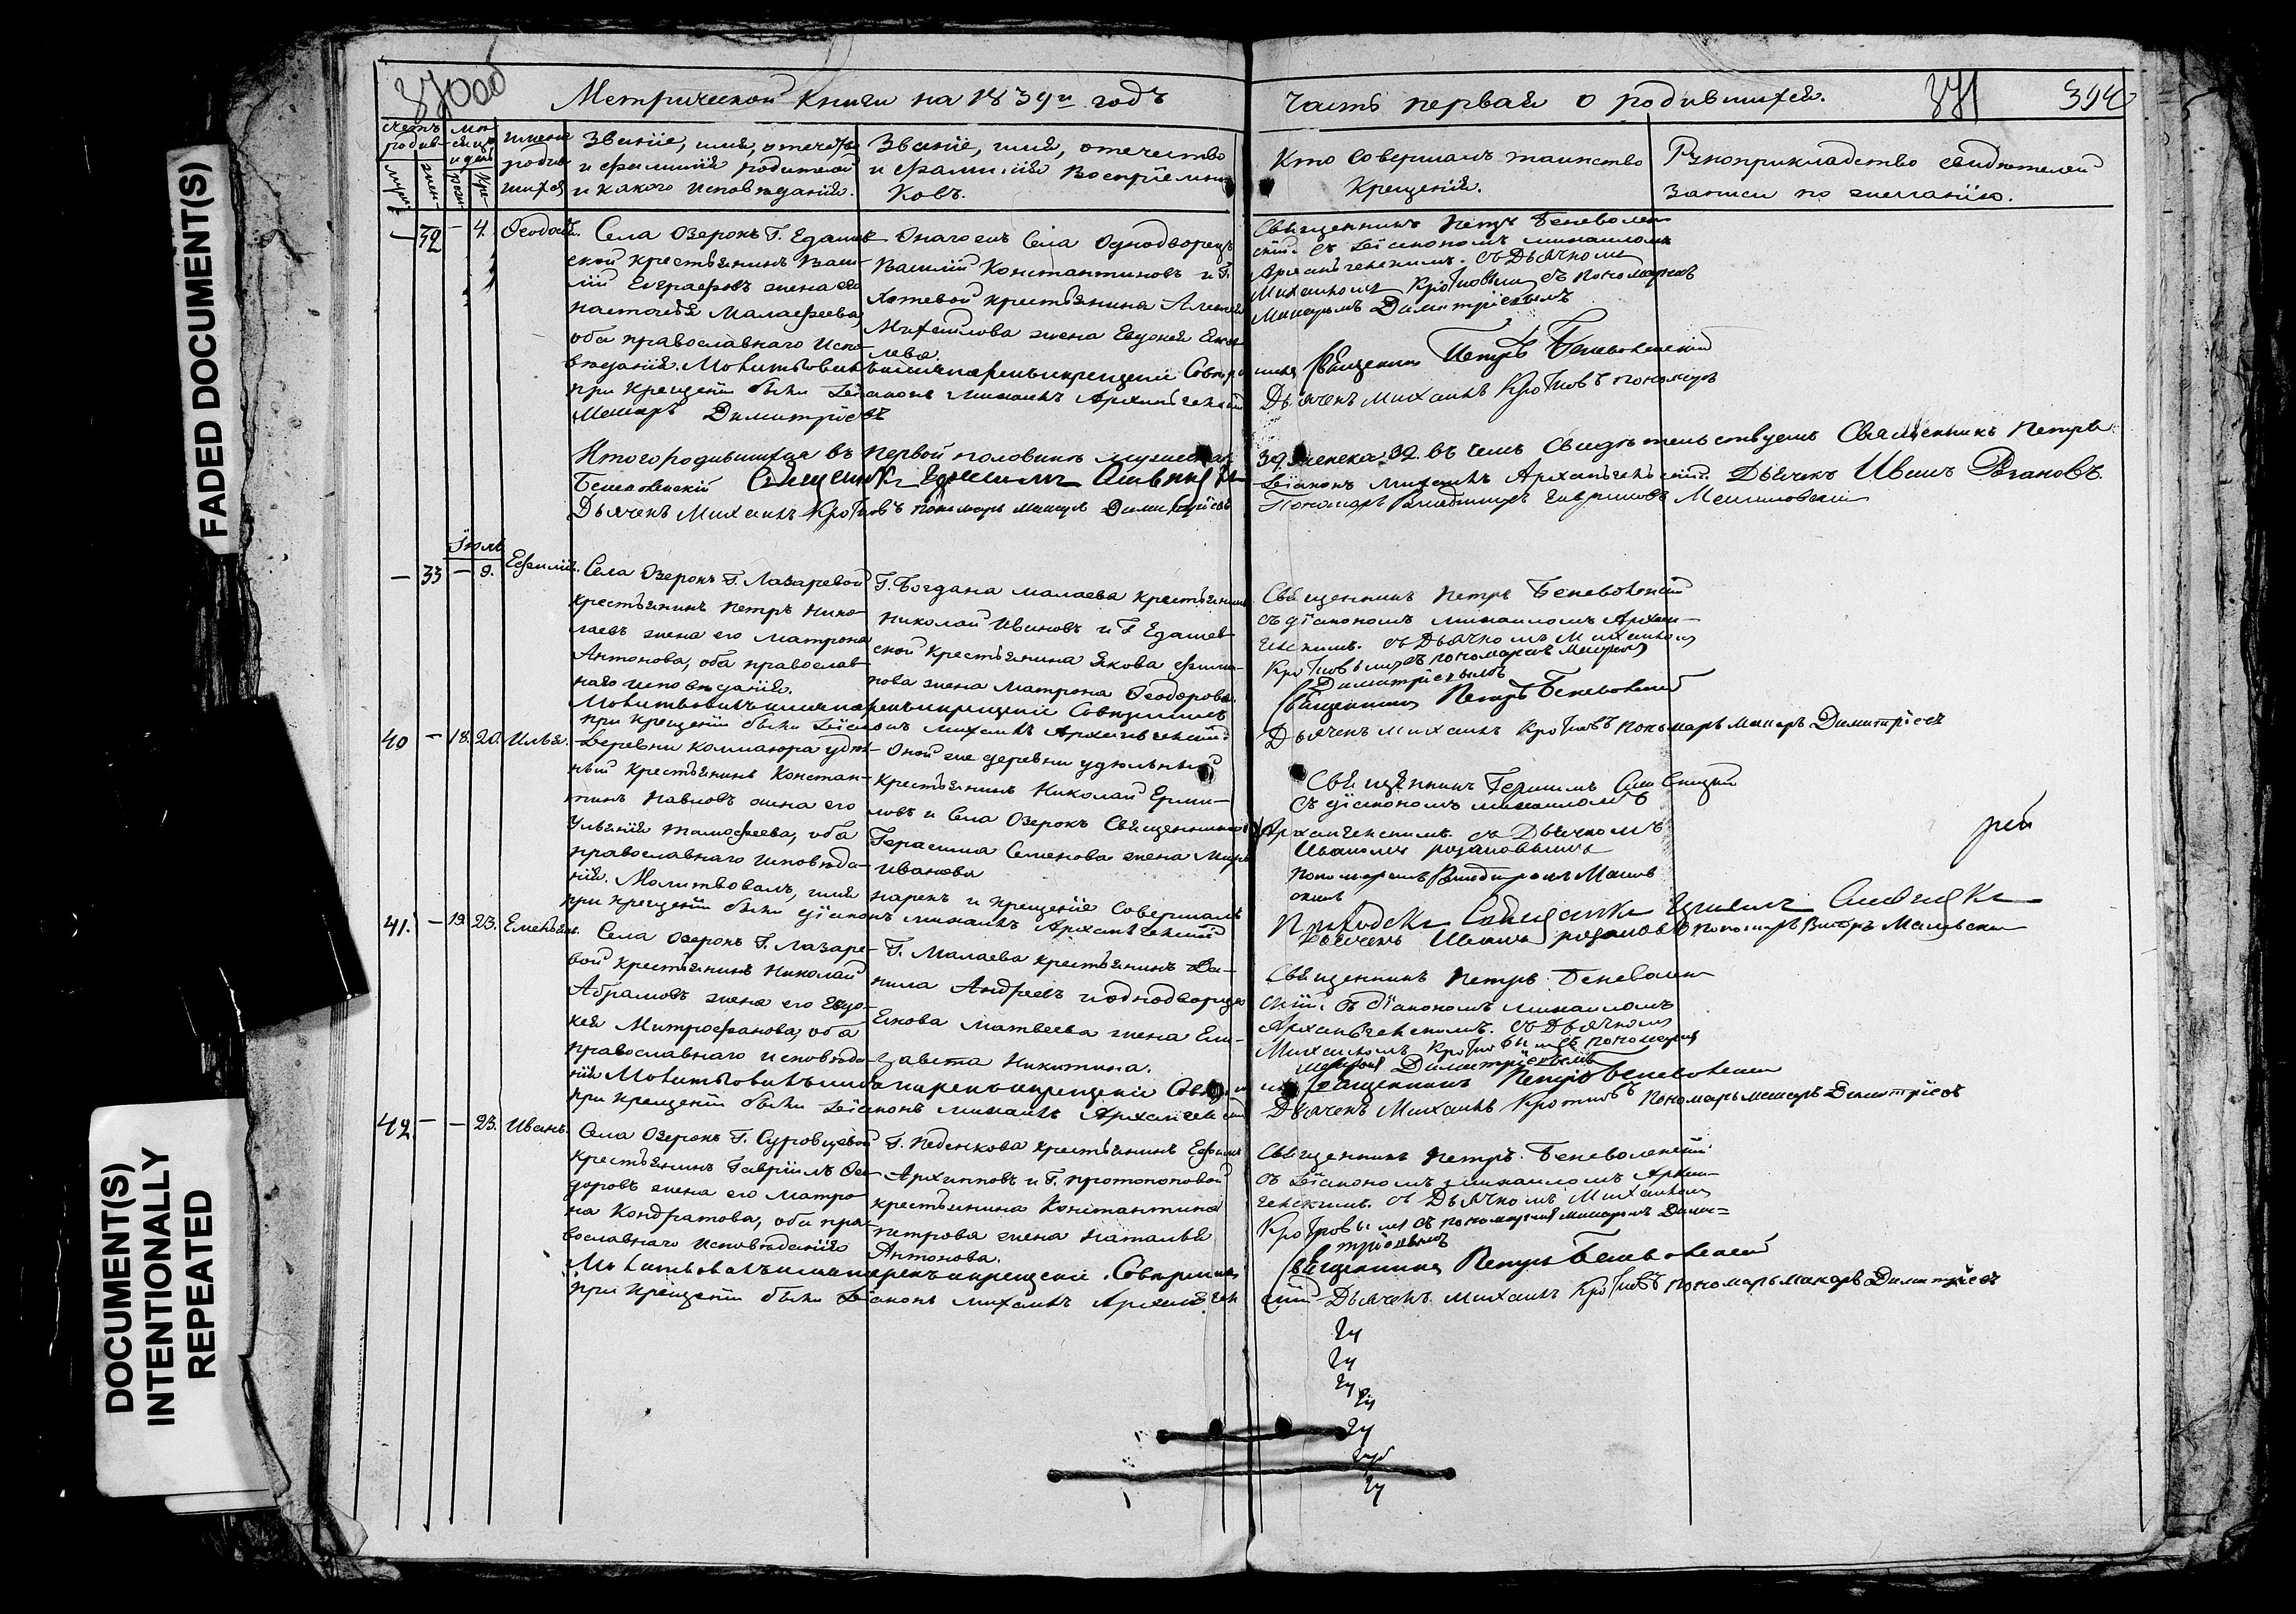 FADED DOCUMENT(S)
DOCUMENT(S)
INTENTIONALLY
REPEATED
370об
Метрической книги на 1839й годъ
часть первая о родившихся.
371
394
счетъ родив-
муж.
жен-
мѣсяцъ и день
рож.
кре-
имена
родив
шихся
Званіе, имя, отечество
и фамилія родителей
и какого исповѣданія.
Званіе, имя, отечество
и фамилія Воспріемни
ковъ.
Кто совершалъ таинство
Крещенія.
Рукоприкладство свидѣтелей
записи по желанію.
— 32 — 4. Ѳеодосія.
Села Озерокъ Г.
ской крестьянинъ Васи-
лій Евграфовъ жена его
настасья Малафеева,
оба православнаго испо-
вѣданія. Молитвовалъ имя нарекъ и крещеніе Соверш
при крещеніи были Діаконъ Михаилъ Архангельскій
Макаръ Димитріевъ
Онаго жъ Села Однодворецъ
Василій Константиновъ и Г.
Хотевой крестьянина Алексея
Михайлова жена Евдокея
лева.
Священникъ Петръ Беневолен
скій. съ Діакономъ михаиломъ
Архангельскимъ. съ Дьячкомъ
Михаиломъ Кротковымъ съ пономаремъ
Макаромъ Димитріевымъ
Священникъ Петръ Беневоленскій
Дьячекъ Михаилъ Кротковъ пономарь
Итого родившихся въ первой половинѣ мужеска
39. женска 32. въ чемъ Свидѣтельствуемъ Священникъ Петръ
Беневоленскій Священникъ
Діаконъ Михаилъ Архангельскій. Дьячекъ Иванъ Розановъ.
Дьячекъ Михаилъ Кротковъ пономарь макаръ Димитріевъ
Пономарь
Іюль
— 33 — 9. Ефимія.
Села Озерокъ Г. Лазаревой
крестьянинъ петръ Нико-
лаевъ жена его матрона
Антонова, оба православ-
наго исповѣданія.
Молитвовалъ имя нарекъ и крещеніе Совершилъ
при крещеніи были Діаконъ михаилъ Архангельскій
Г. Богдана малаева крестьянинъ
николай Ивановъ и Г.
ской крестьянина Якова фили-
пова жена матрона Ѳеодорова.
Священникъ Петръ Беневоленскій
съ діакономъ михаиломъ Архан-
гельскимъ. съ Дьячкомъ Михаиломъ
Кротковымъ съ пономаремъ Макаромъ
Димитріевымъ
Священникъ Петръ Беневоленскій
Дьячекъ михаилъ Кротковъ Пономарь макаръ Димитріевъ
40 — 18. 20. Илья.
Деревни коммаюра удѣль-
ный крестьянинъ Констан-
тинъ павловъ жена его
Ульянія тимофеева, оба
православнаго исповѣда-
нія. Молитвовалъ, имя
нарекъ и крещеніе Совершалъ
при крещеніи были діаконъ михаилъ Архангельскій
Оной же деревни удѣльный
крестьянинъ Николай Ерми-
ловъ и Села Озерокъ Священника
Герасима Семенова жена
Иванова
Священникъ Герасимъ
съ діакономъ михаиломъ
Архангельскимъ. съ Дьячкомъ
Иваномъ розановымъ
пономаремъ
Священникъ
Дьячекъ Иванъ розановъ пономарь
41. — 19. 23. Емельянъ.
Села Озерокъ Г. Лазаре-
вой крестьянинъ Николай
Абрамовъ жена его Евдо-
кея Митрофанова, оба
православнаго исповѣда-
нія Молитвовалъ имя нарекъ и крещеніе Сов
при крещеніи были Діаконъ михаилъ Архангельскій
Г. Малаева крестьянинъ Да-
нила Андреевъ и однодворца
Якова Матвеева жена Ели-
завета Никитина.
Священникъ Петръ Беневолен
скій. съ діакономъ михаиломъ
Архангельскимъ. съ Дьячкомъ
Михаиломъ Кротковымъ пономаремъ
Макаромъ Димитріевымъ
Священникъ Петръ Беневоленскій
Дьячекъ Михаилъ Кротковъ Пономарь макаръ Димитріевъ
42. — — 23. Иванъ.
Села Озерокъ Г. Суровцевой
крестьянинъ Гавріилъ Ѳео-
доровъ жена его Матро-
на Кондратова, оба пра-
вославнаго исповѣданія
Молитвовалъ имя нарекъ и крещеніе. Совершилъ
при крещеніи были Діаконъ михаилъ Архангель
Г. Педенкова крестьянинъ Ефимъ
Архиповъ и Г. протопоповой
крестьянина Константина
петрова жена наталья
Антонова.
Священникъ Петръ. Беневоленскій
съ Діакономъ михаиломъ Архан-
гельскимъ. съ Дьячкомъ Михаиломъ
Кротковымъ съ пономаремъ макаромъ Дими=
тріевымъ
Священникъ Петръ Беневоленскій
скій Дьячекъ михаилъ Кротковъ пономарь макаръ Димитріевъ